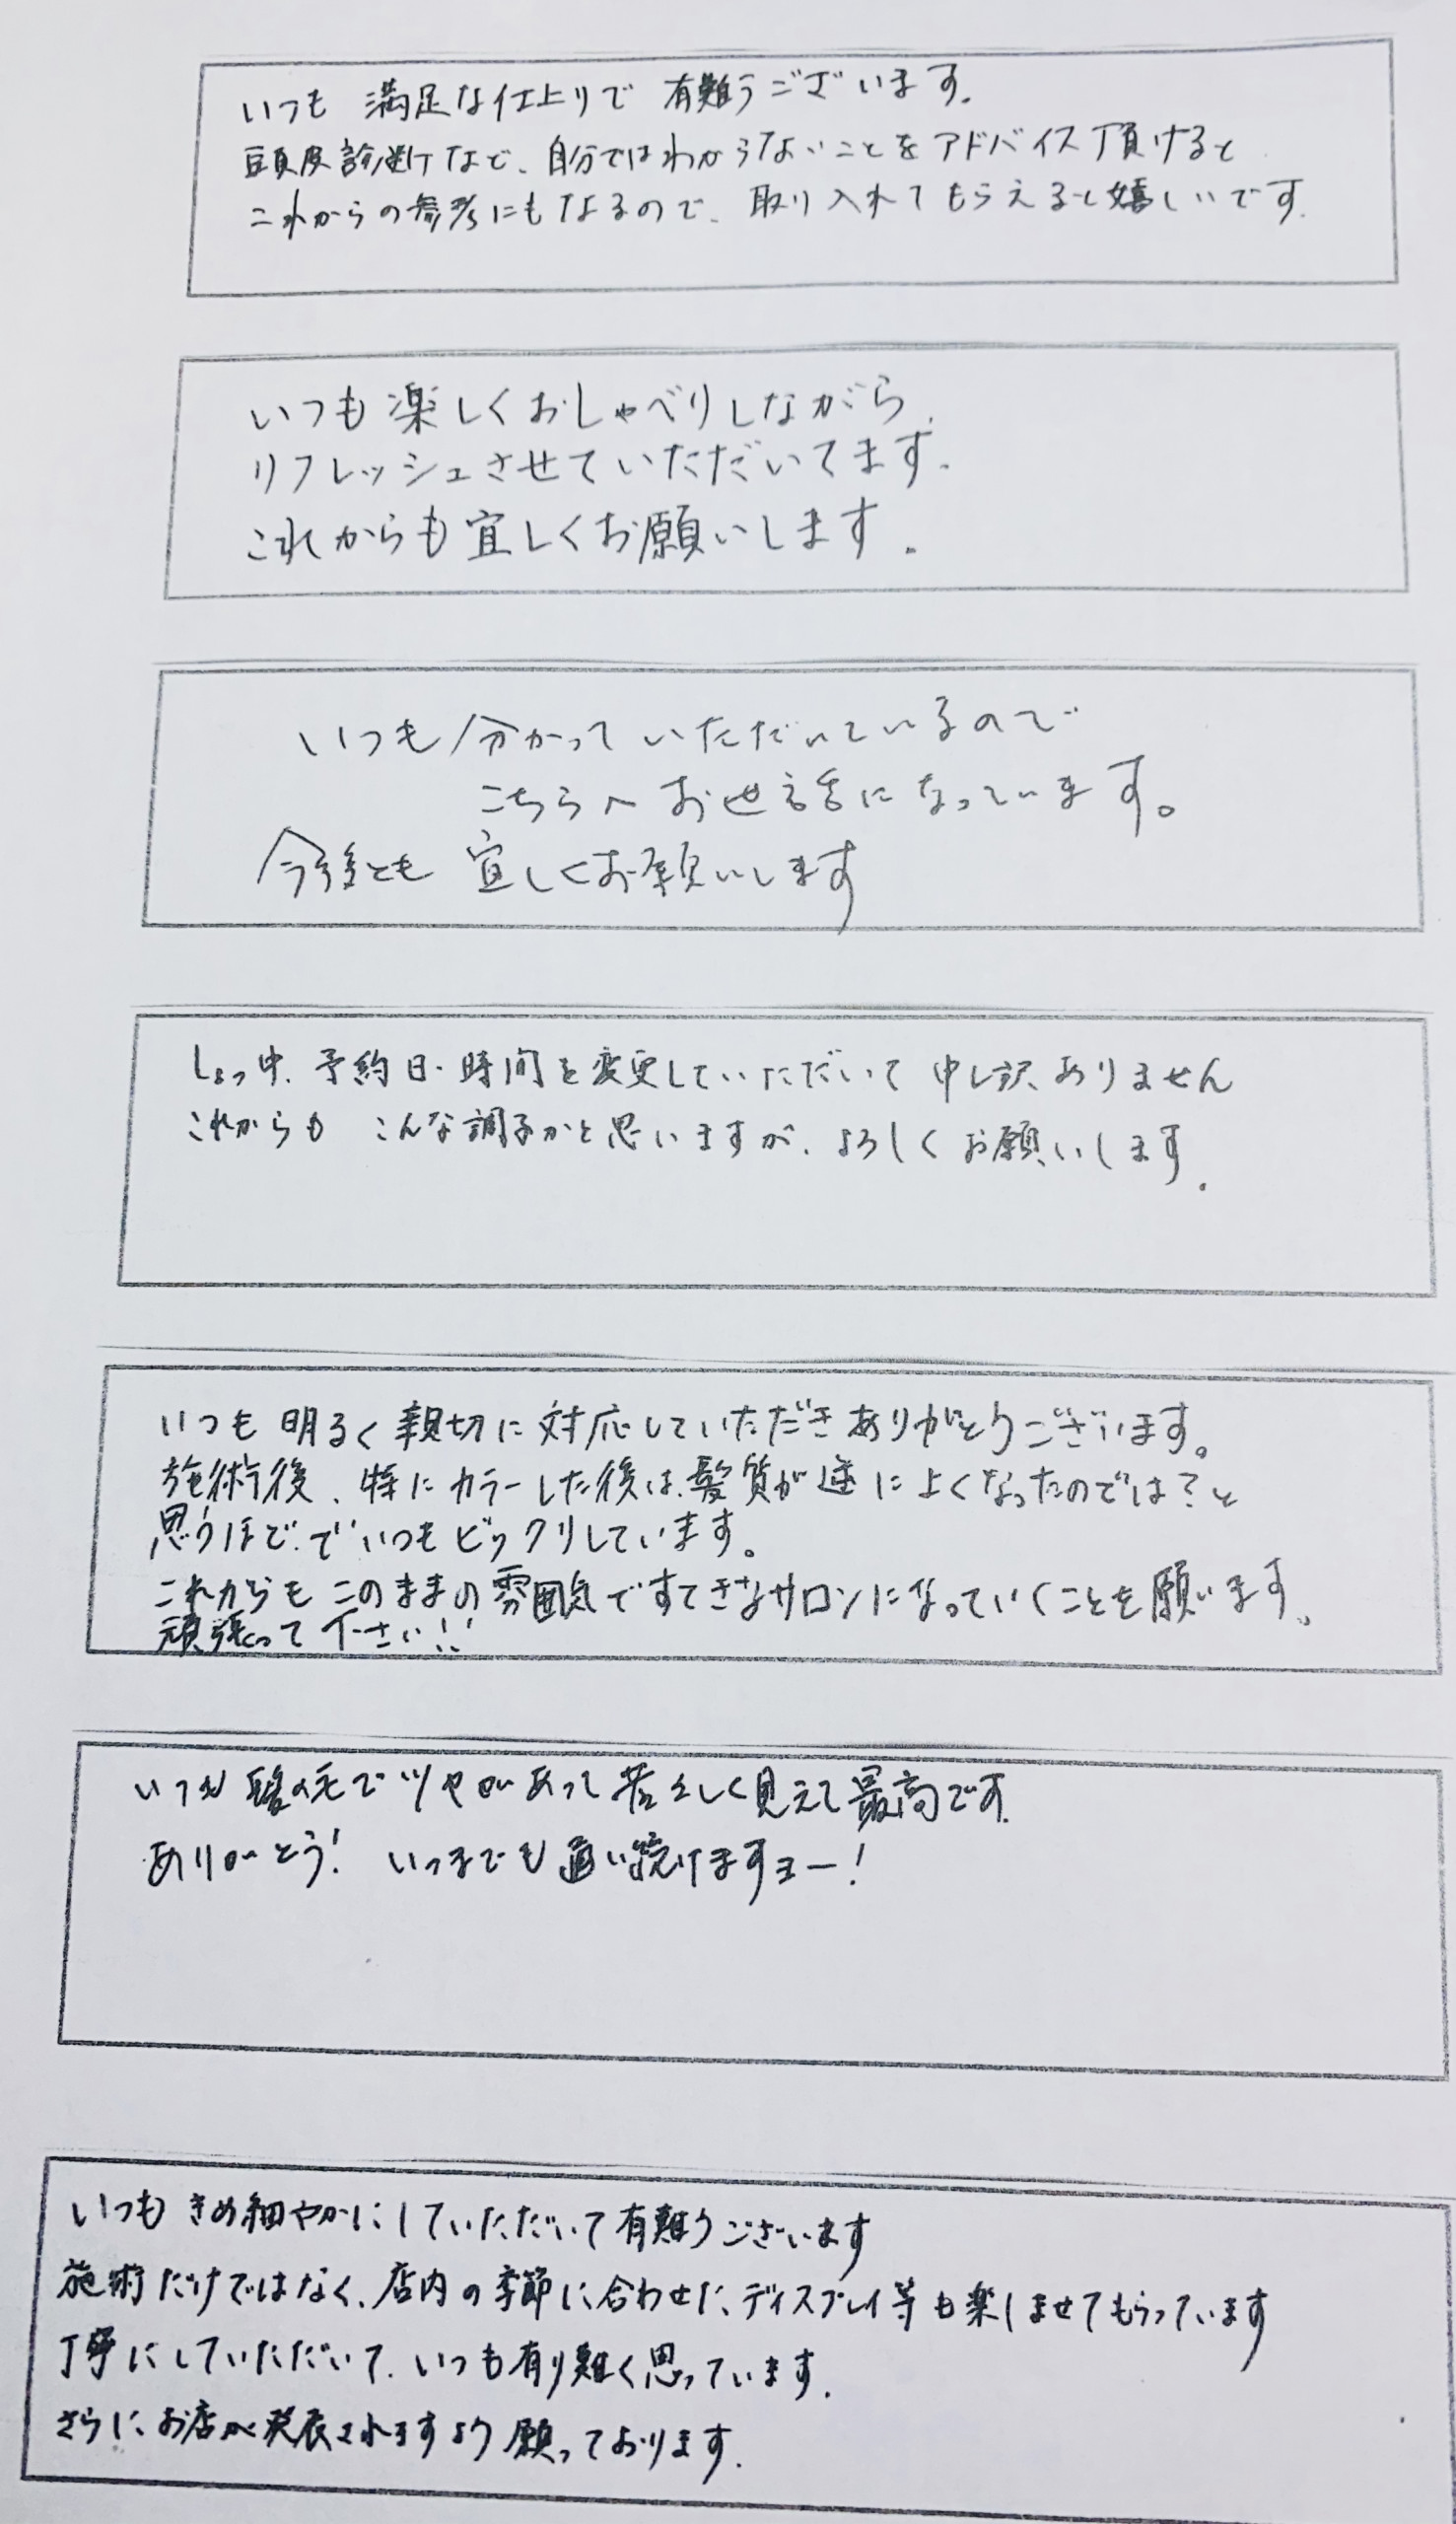 いつも 満足な仕上りで 有難うございます。
頭皮診断など、自分ではわからないことをアドバイス頂けると
これからの参考にもなるので、取り入れてもらえると嬉しいです。
いつも楽しくおしゃべりしながら、
リフレッシュさせていただいてます。
これからも宜しくお願いします。
いつも分かっていただいているので
こちらへお世話になっています。
今後とも 宜しくお願いします
しょっ中、予約日・時間を変更していただいて 申し訳ありません
これからも こんな調子かと思いますが、よろしくお願いします。
いつも明るく親切に対応していただきありがとうございます。
施術後、特にカラーした後は、髪質が逆によくなったのでは?と
思うほどで、いつもビックリしています。
これからもこのままの雰囲気ですてきなサロンになっていくことを願います。
頑張って下さい!!
いつも髪の毛でツヤがあって若々しく見えて最高です。
ありがとう! いつまでも通い続けますヨー!
いつもきめ細やかにしていただいて有難うございます
施術だけではなく、店内の季節に合わせた、ディスプレイ等も楽しませてもらっています
丁寧にしていただいて、いつも有り難く思っています。
さらにお店が発展されますよう願っております。